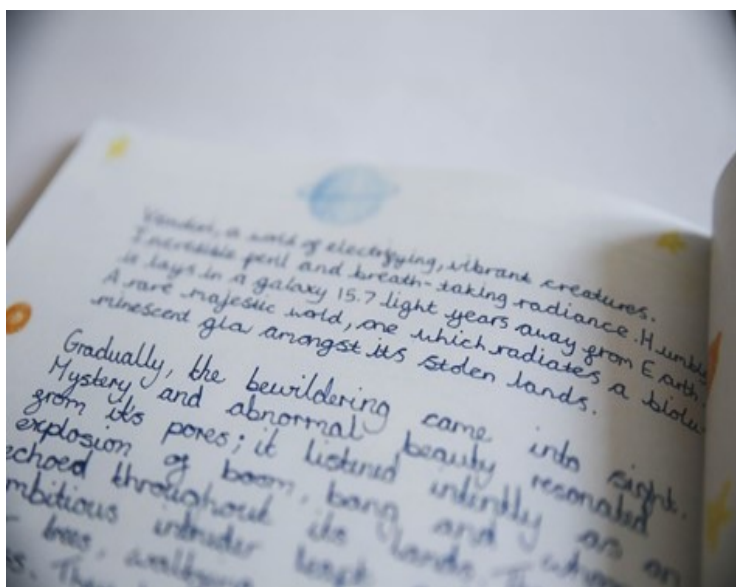 a world of electrifying, vibrant creatures.
Incredible peril and breath-taking radiance. Humbly
it lays in a galaxy 15.7 light years away from Earth.
A rare majestic world, one which radiates a biolu-
minescent glow amongst its stolen lands.
Gradually, the bewildering came into sight.
Mystery and abnormal beauty resonated
from its pores; it listened intently as an
explosion of boom, bang and
echoed throughout its lands.
ambitious intruder
trees,